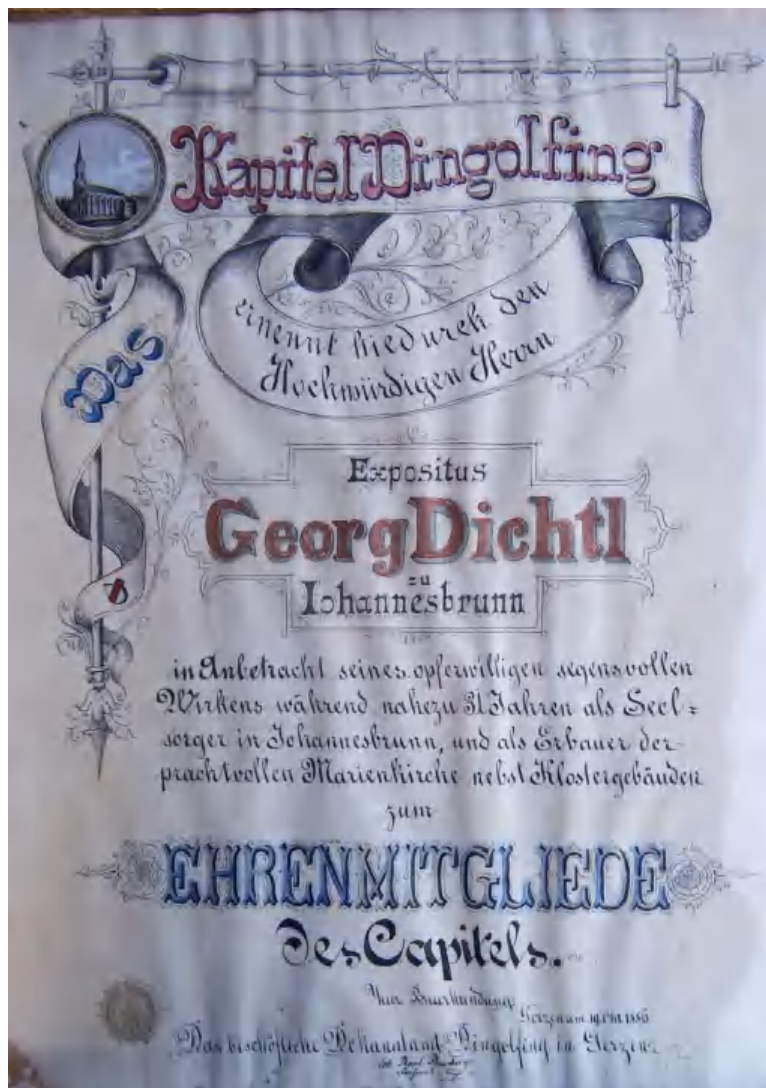 Das
Kapitel Dingolfing
ernennt hiedurch den
Hochwürdigen Herrn
Expositus
Georg Dichtl
zu
Iohannesbrunn
in Anbetracht seines opferwilligen segensvollen
Wirkens während nahezu 31 Jahren als Seel=
sorger in Johannesbrunn, und als Erbauer der
prachtvollen Marienkirche nebst Klostergebäuden
zum
EHRENMITGLIEDE
des Capitels.
Zur Beurkundung
Gerzen am
Das bischöfliche Dekanaland Dingolfing in Gerzen